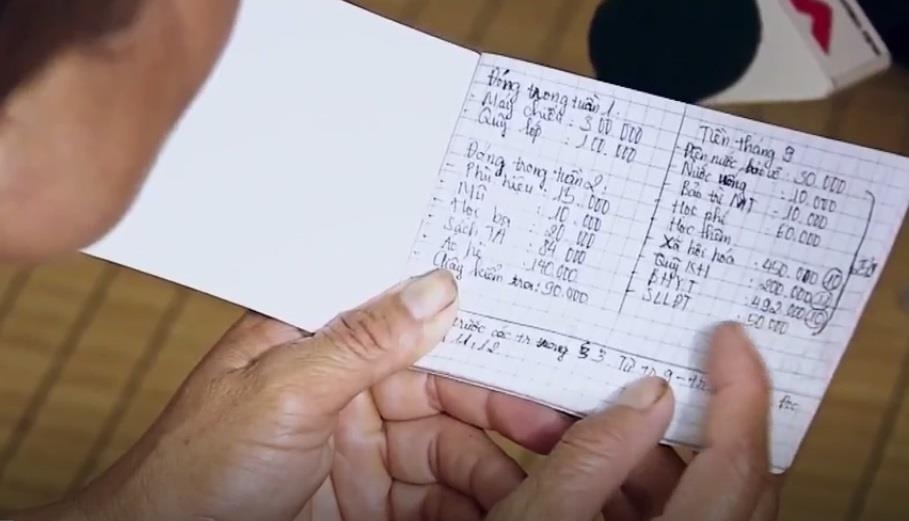 Đóng trong tuần 1:
- Máy chiếu : 300.000
- Quỹ lớp : 100.000
Đóng trong tuần 2:
- Phù hiệu : 15.000
- Mũ : 10.000
- Học bạ : 20.000
- Sách TA : 84.000
- Áo : 140.000
- Giấy kiểm tra : 90.000
trước các tr trong 3
11, 12
Tiền tháng 9
- Điện nước bảo vệ : 30.000
- Nước uống : 10.000
- Bảo trì MT : 10.000
- Học phí : 60.000
- Học thêm
- Xã hội hóa : 450.000
- Quỹ KH : 200.000
- BHYT : 492.000
- SLLĐT : 50.000
Từ 9 -